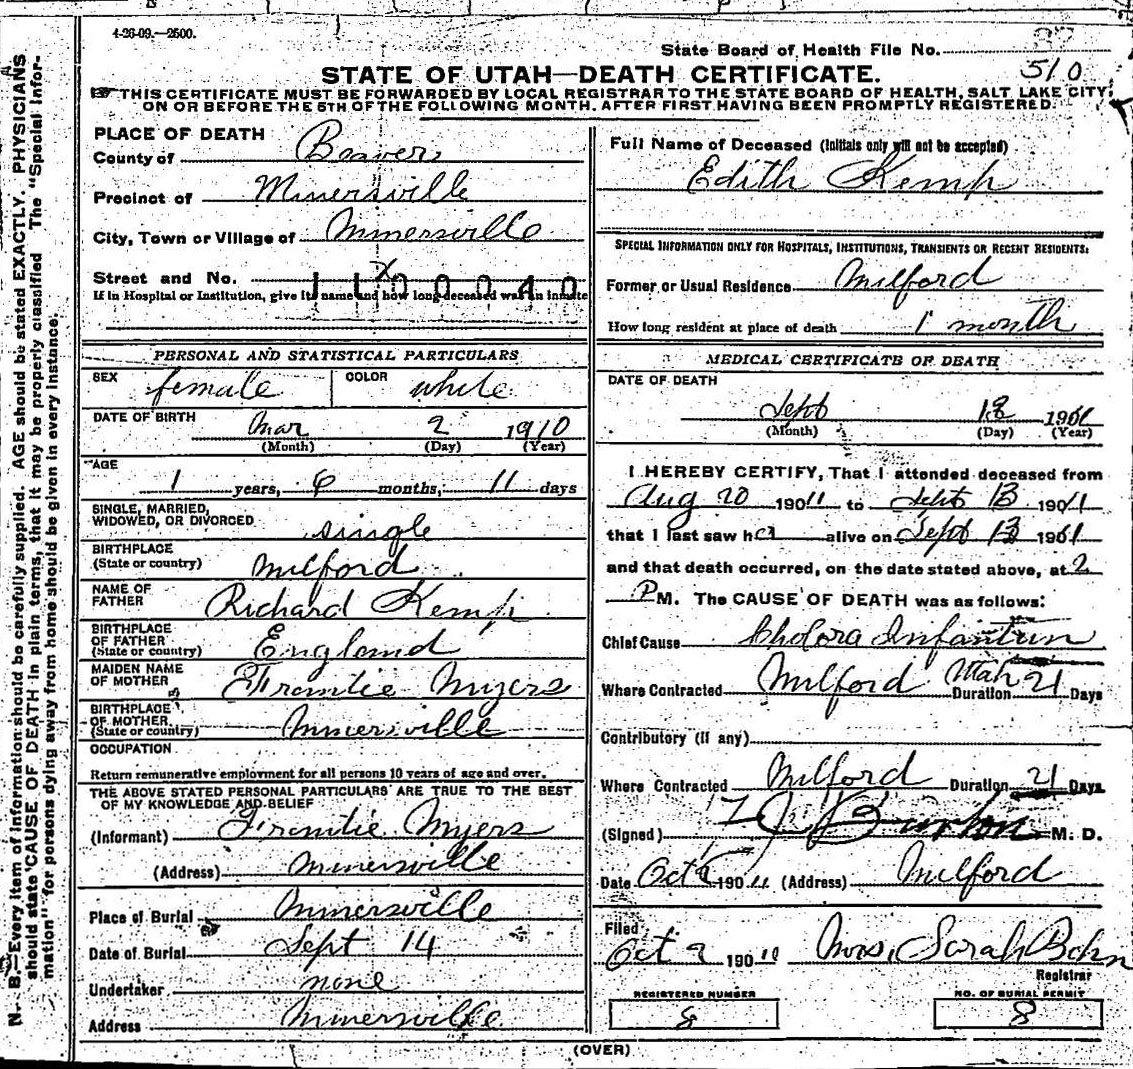 4-26-09.—2500.
State Board of Health File No.
510
STATE OF UTAH—DEATH CERTIFICATE.
THIS CERTIFICATE MUST BE FORWARDED BY LOCAL REGISTRAR TO THE STATE BOARD OF HEALTH, SALT LAKE CITY,
ON OR BEFORE THE 5TH OF THE FOLLOWING MONTH. AFTER FIRST HAVING BEEN PROMPTLY REGISTERED.
N. B.—Every item of information should be carefully supplied. AGE should be stated EXACTLY. PHYSICIANS
should state CAUSE OF DEATH in plain terms, that it may be properly classified. The "Special Infor-
mation" for persons dying away from home should be given in every instance.
PLACE OF DEATH
County of Beaver
Precinct of Minersville
City, Town or Village of Minersville
Street and No. X
1100040
If in Hospital or Institution, give its name and how long deceased was an inmate
PERSONAL AND STATISTICAL PARTICULARS
SEX female COLOR white
DATE OF BIRTH Mar 2 1910
(Month) (Day) (Year)
AGE
1 years, 6 months, 11 days
SINGLE, MARRIED,
WIDOWED, OR DIVORCED single
BIRTHPLACE
(State or country) Milford
NAME OF
FATHER Richard Kemp
BIRTHPLACE
OF FATHER
(State or country) England
MAIDEN NAME
OF MOTHER Myers
BIRTHPLACE
OF MOTHER
(State or country) Minersville
OCCUPATION
Return remunerative employment for all persons 10 years of age and over.
THE ABOVE STATED PERSONAL PARTICULARS ARE TRUE TO THE BEST
OF MY KNOWLEDGE AND BELIEF
(Informant) Myers
(Address) Minersville
Place of Burial Minersville
Date of Burial Sept 14
Undertaker none
Address Minersville
Full Name of Deceased (Initials only will not be accepted)
Edith Kemp
SPECIAL INFORMATION ONLY FOR HOSPITALS, INSTITUTIONS, TRANSIENTS OR RECENT RESIDENTS:
Former or Usual Residence Milford
How long resident at place of death 1 month
MEDICAL CERTIFICATE OF DEATH
DATE OF DEATH
Sept 13
(Month) (Day) (Year)
I HEREBY CERTIFY, That I attended deceased from
Aug 20 19011 to Sept 13 1901
that I last saw her alive on Sept 13 1901
and that death occurred, on the date stated above, at 2
P M. The CAUSE OF DEATH was as follows:
Chief Cause Cholora Infantum
Where Contracted Milford Duration 21 Days
Contributory (if any)
Where Contracted Milford Duration 21 Days
(Signed) Burton M. D.
Date Oct 19011 (Address) Milford
Filed
Oct 2 19010 Mrs. Sarah
Registrar
REGISTERED NUMBER
8
NO. OF BURIAL PERMIT
8
(OVER)